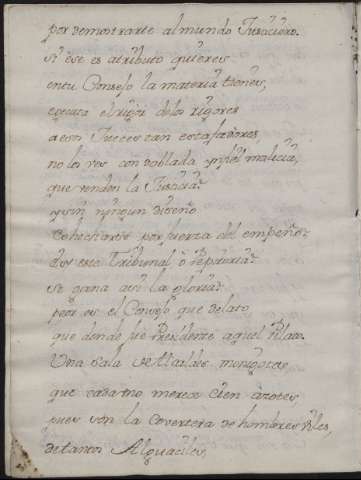 por demostrarte al mundo Justiciero.
si ese es atributo quieres
en tu Consejo la materia tienes,
executa el rigor de los rigores
a essos Jueces tan estafadores,
no los ves con doblada infiel malicia,
que venden la Justicia?
y sin ningun diseño
cohecharse por fuerza del empeño?
Por este Tribunal ò
se gana assi la gloria?
peor es el Consejo que delato,
que donde fue Presidente aquel Pilato.
Una Sala de Alcaldes monigotes,
que cada uno merece cien azotes,
pues son la covertera de hombres viles,
de tantos Alguaciles,